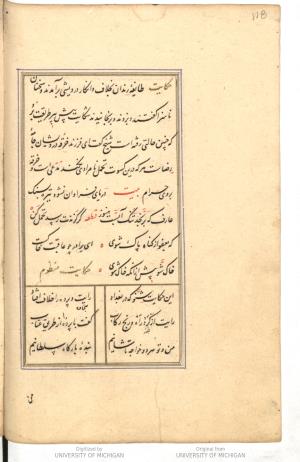 118
حکایت طایفهٔ رندان بخلاف و انکار درویشی بدر آمدند و سخنان
ناسزا گفتند و بزدند و برنجانیدند شکایت پیش پیر طریقت برد
که چنین حالتی رفت شیخ گفت ای فرزند خرقهٔ درویشان جامهٔ
رضاست هر که درین کسوت تحمل نامرادی نکند مدعی است و خرقه
بروی حرام بیت دریای فراوان نشود تیره بسنگ
عارف که برنجد تنک آبست هنوز قطعه گر گزندت رسد تحمل کن
که بعفو از گناه پاک شوی ای برادر چو عاقبت خاکست
خاک شو پیش از آنکه خاک شوی حکایت منظوم
این حکایت شنو که در بغداد رایت و پرده را خلاف افتاد
رایت از گرد راه و رنج رکاب گفت با پرده از طریق عتاب
من و تو هر دو خواجه تاشانیم بندهٔ بارگاه سلطانیم
Digitized by
UNIVERSITY OF MICHIGAN
Original from
UNIVERSITY OF MICHIGAN